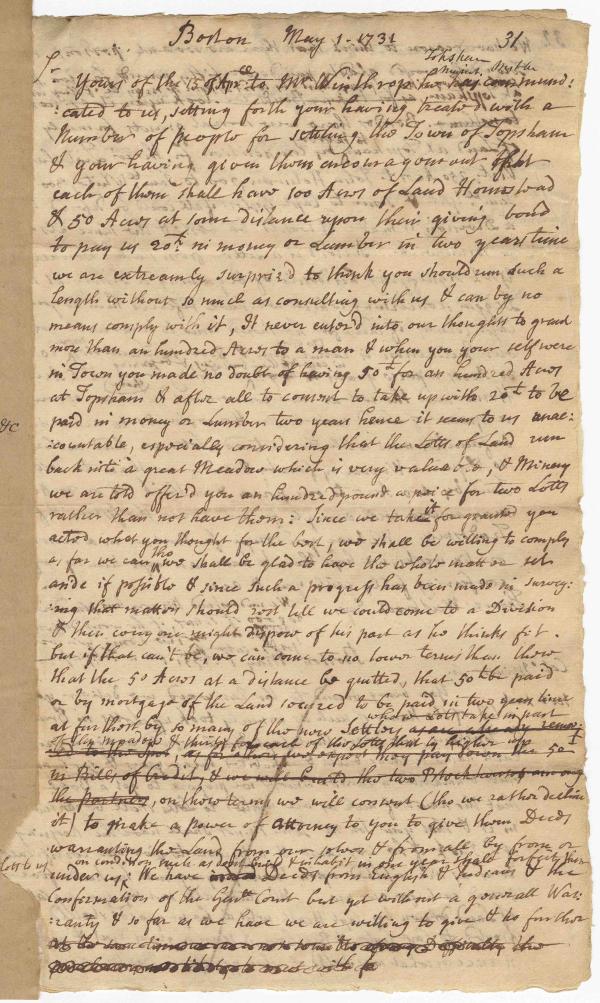 Boston May 1. 1731
31
Topsham
Sr
Yours of the 15 of Apr to Mr Winthrop he has commun:
:cated to us, setting forth your having treated with a
Number of people for settling the Town of Topsham
& your having given them encouragement
each of them shall have 100 Acres of Land Homestead
& 50 Acres at some distance upon their giving bond
to pay us 20tt in money or Lumber in two years time
we are extreamly surpriz'd to think you should run such a
length without so much as consulting with us & can by no
means comply with it, It never enter'd into our thoughts to grant
more than an hundred Acres to a man & when you your self were
in Town you made no doubt of having 50tt for an hundred Acres
at Topsham & after all to consent to take up with 20tt to be
&c
paid in money or Lumber two years hence it seems to us unac:
:countable, especially considering that the Lotts of Land run
back into a great Meadow which is very valuable, &
we are told offer'd you an hundred pound a piece for two Lotts
rather than not have them: Since we take it for granted you
acted what you thought for the best, we shall be willing to comply
as far we can tho we shall be glad to have the whole matter set
aside if possible & since such a progress has been made in survey:
:ing that matters should rest till we could come to a Division
& then every one might dispose of his part as he thinks fit.
but if that can't be, we can come to no lower terms than these
that the 50 Acres at a distance be quitted, that 50tt be paid
or by mortgage of the Land secured to be paid in two years time
whose Lotts take in part
at furthest by so many of the new Settlers as are already remov:
in Bills of Credit, & we will build the two Blockhouses among
the Partners, on those terms we will consent (tho we rather decline
it) to make a power of attorney to you to give them Deeds
warranting the Land from our selves & from all by from or
on condition such as dont build & inhabit in one year shall forfeit
under us: We have Deeds from English & Indians & the
Confermation of the Genll Court but yet without a generall War:
:ranty & so far as we have we are willing to give & no further